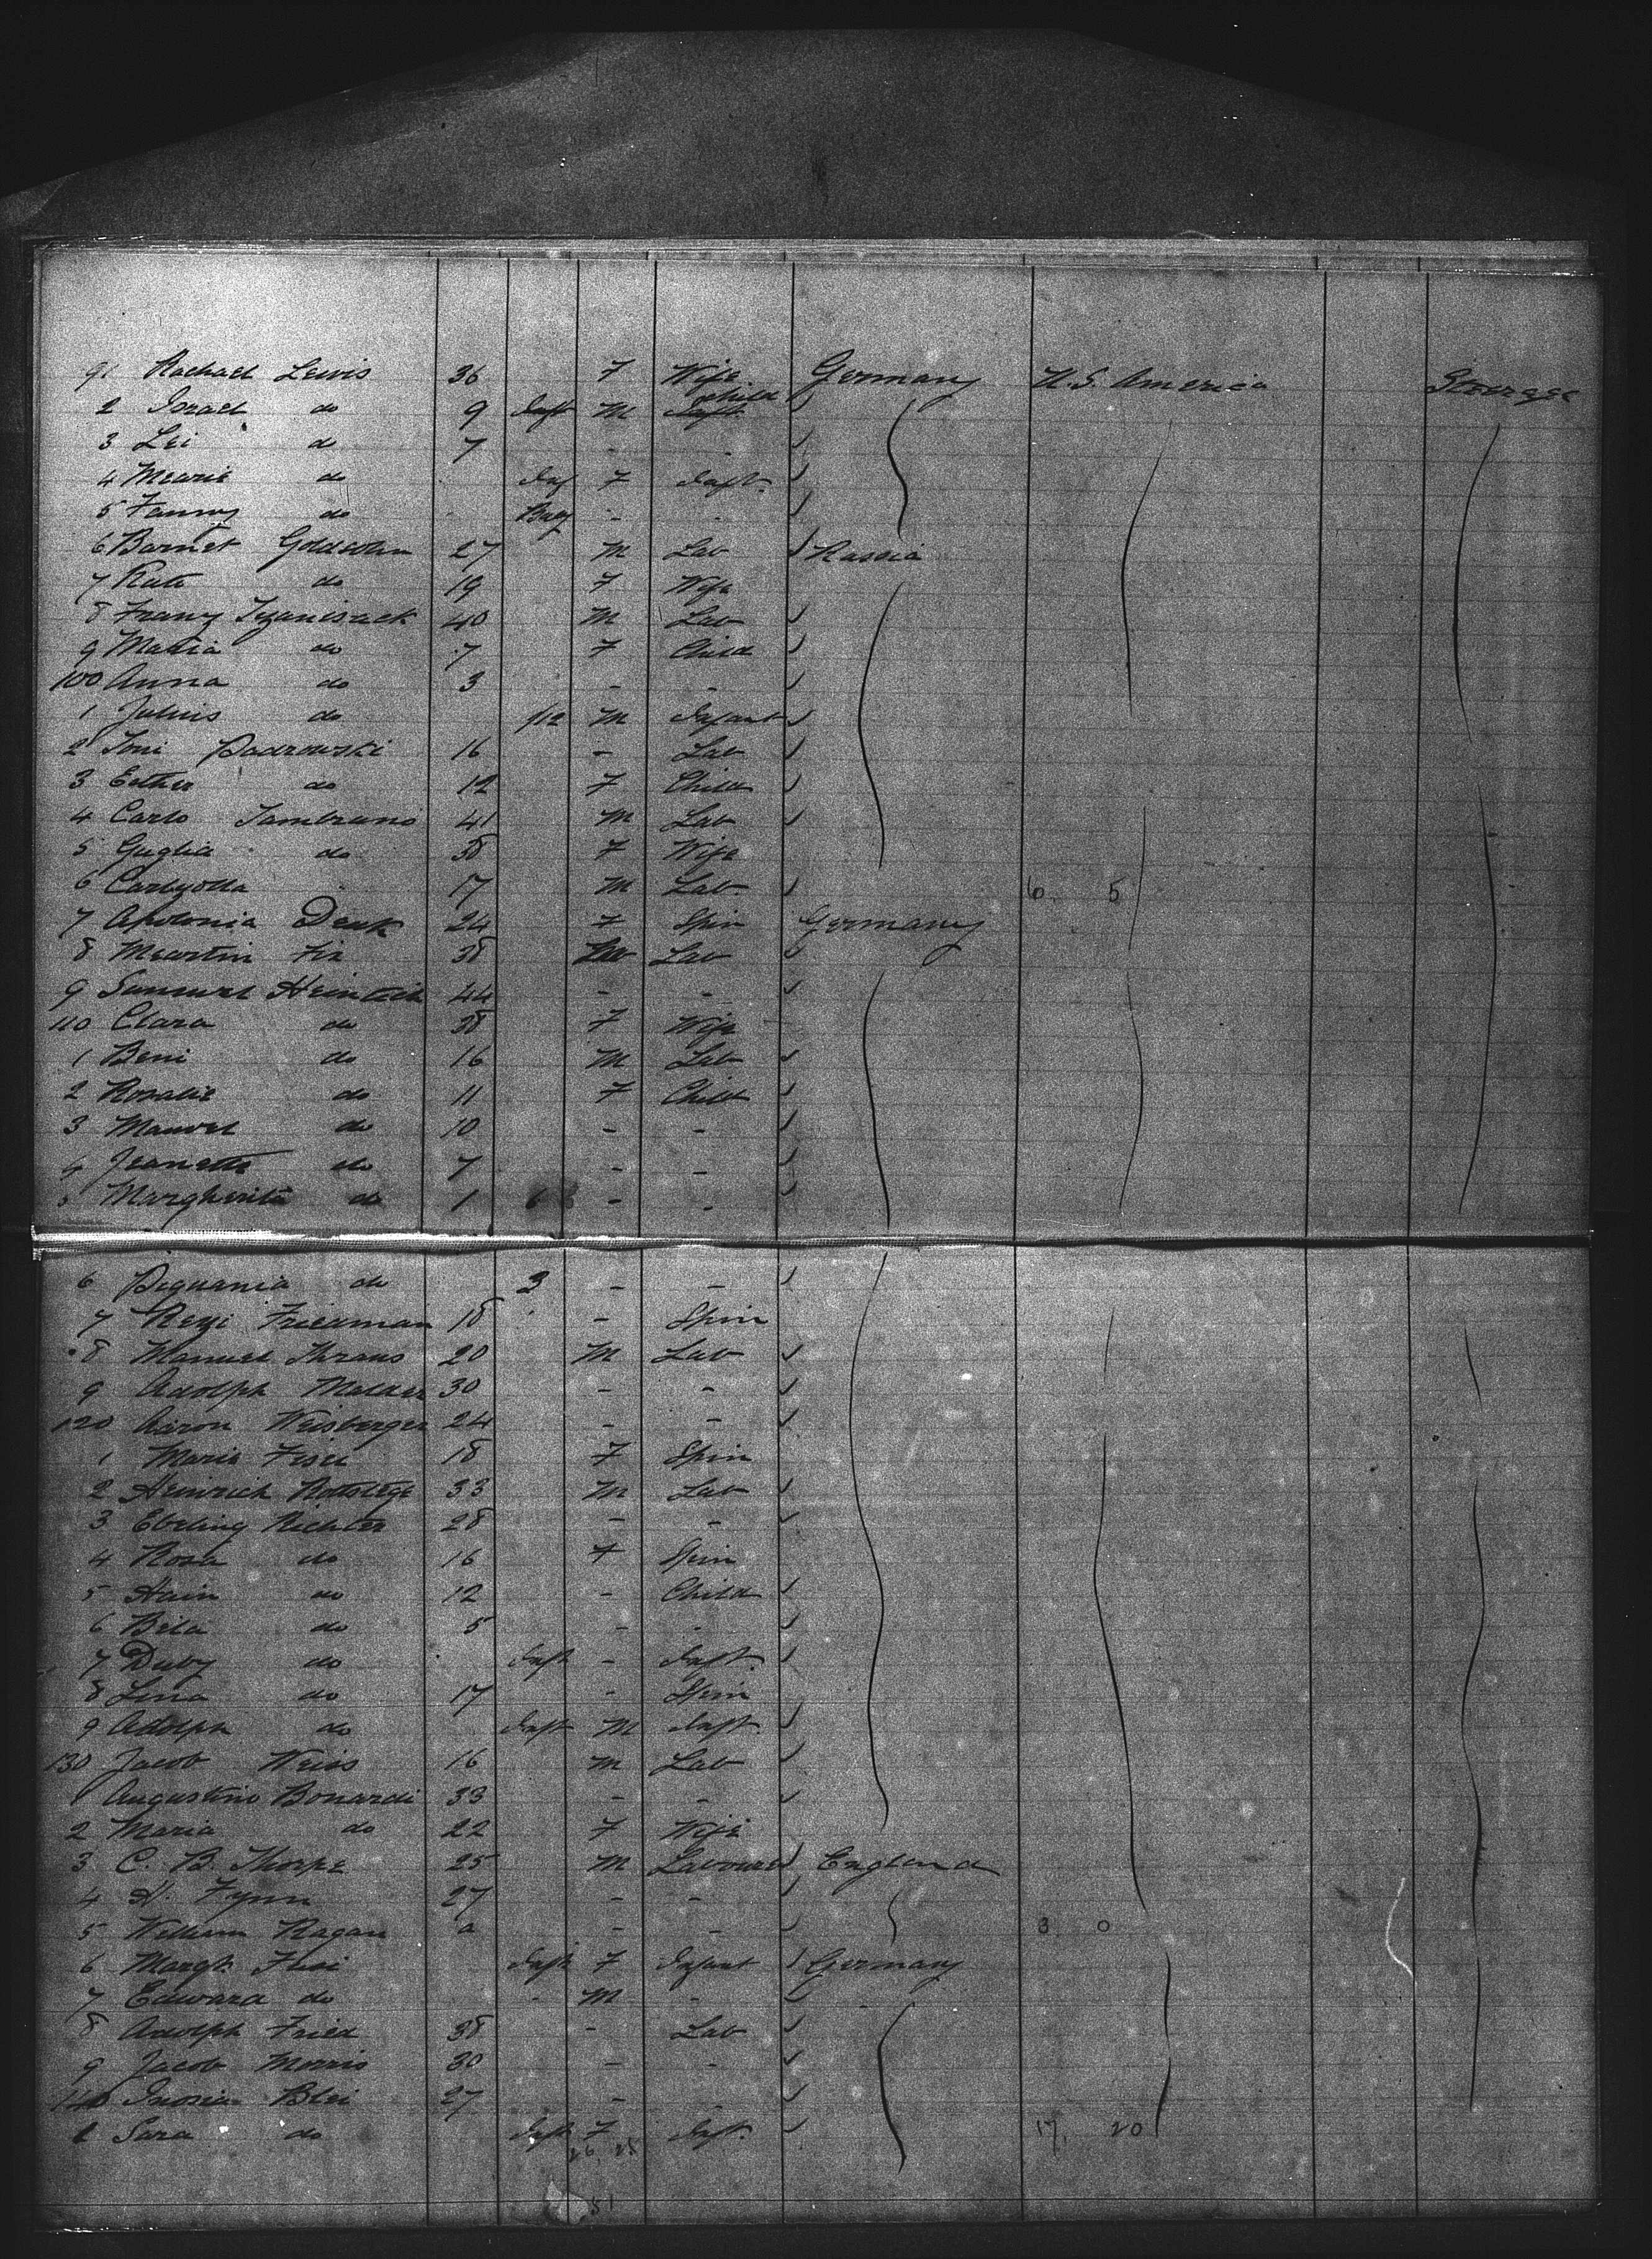 91 Rachael Lewis 36 F Wife Germany U.S. America Steerage
2 Israel do 9 Inft M child Inft
3 Lei do 7 - -
4 Mearie do Inf F Inft.
5 Fanny do - -
6 Barnet Goldsohn 27 M Lab Russia
7 Kate do 19 F Wife
8 Franz 40 M Lab
9 Maria do 7 F Child
100 Anna do 3 - -
1 Julius do 1/12 M Infant
2 Toni 16 - Lab
3 Esther do 12 F Child
4 Carlo 41 M Lab
5 Guglia do 38 F Wife
6 17 M Lab. 6. 5
7 Apolonia Denk 24 F Spin Germany
8 Meartin Fix 38 Lab
9 44 - -
110 Clara do 38 F Wife
1 Beni do 16 M Lab
2 Rosalie do 11 F Child
3 Manuel do 10 - -
4 Jeanette do 7 - -
5 Margherita do 1 6 - -
6 do 3 - -
7 Regi Friedman 18 - Spin
8 Manuel Kraus 20 M Lab
9 Adolph 30 - -
120 Aaron Weisberger 24 - -
1 Maria 18 F Spin
2 Heinrich 33 M Lab
3 Ebeling Richter 28 - -
4 Rosa do 16 F Spin
5 Hain do 12 - Child
6 Bela do 5 - -
7 do Inft - Inft.
8 Lina do 17 - Spin
9 Adolph do Inft M Inft.
130 Jacob Weiss 16 M Lab
1 Augustino Bonardi 33 - -
2 Maria do 22 F Wife
3 C. B. Thorpe 25 M Labourer England
4 H. Fynn 27 - -
5 William Ragan a - - 3 0
6 Margt. Inft F Infant Germany
7 Edward do - M -
8 Adolph Fried 38 - Lab
9 Jacob Morris 30 - -
140 Blei 27 - -
1 Sara do Inft F Inft. 17. 20
26 25
51